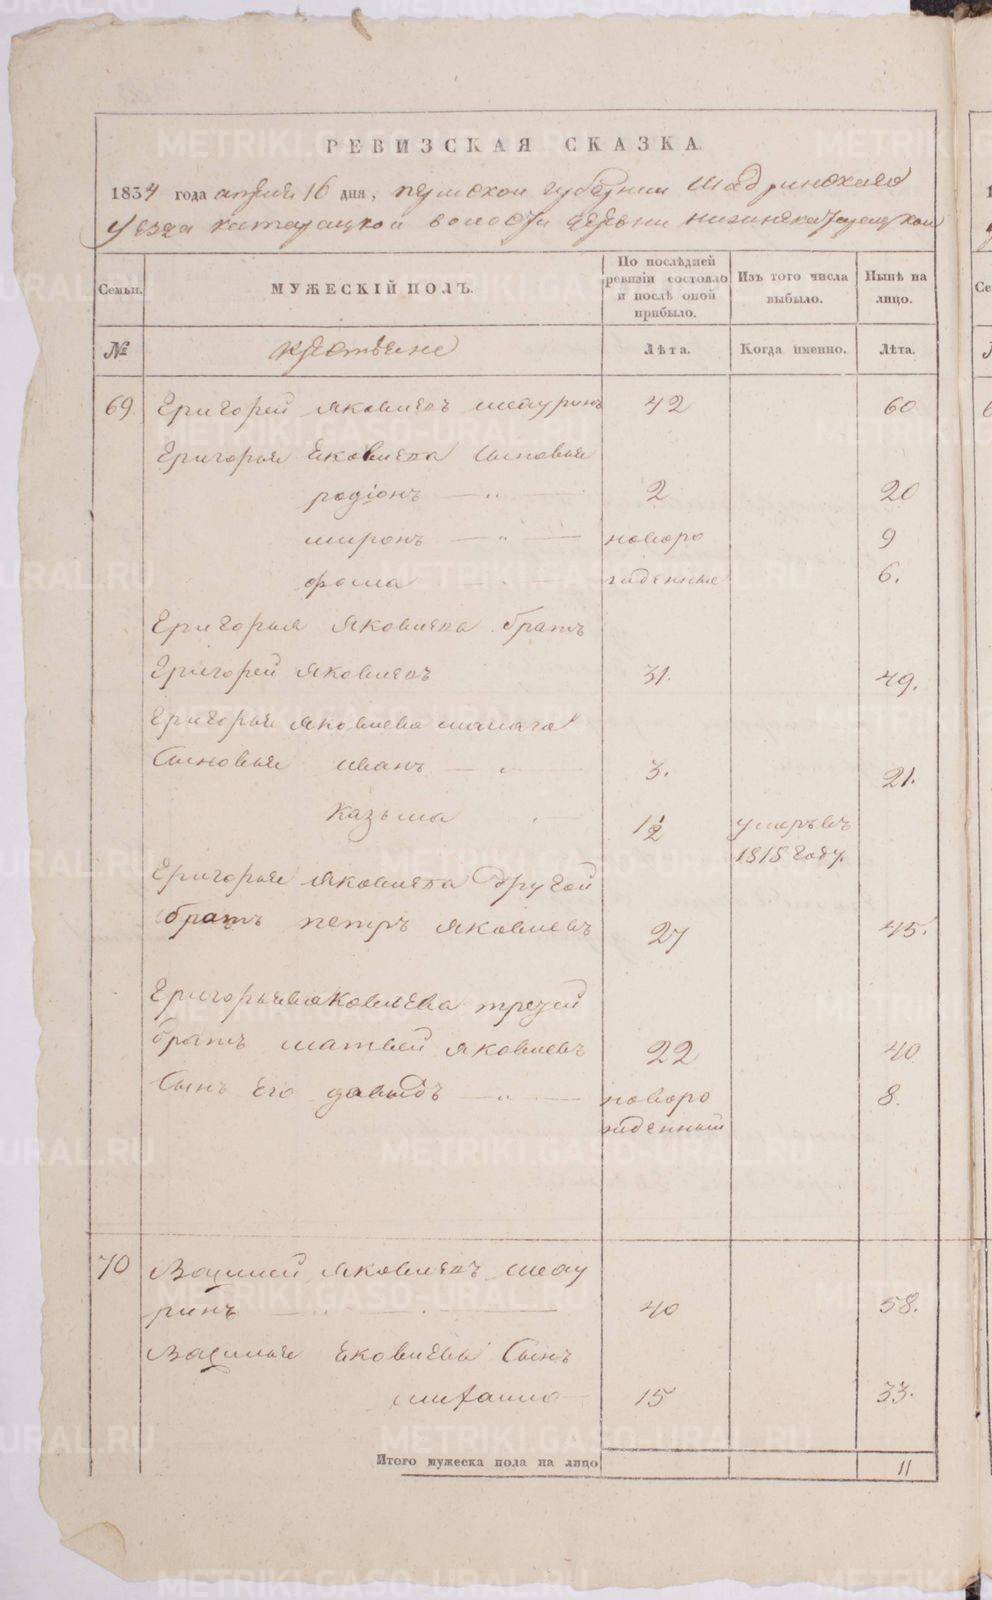 РЕВИЗСКАЯ СКАЗКА.
1834 года апреля 16 дня, пермской губернии Шадринскаго
уезда катайцкой волости деревни
Семьи. МУЖЕСКІЙ ПОЛЪ. По послѣдней ревизіи состояло и послѣ оной прибыло. Изъ того числа выбыло. Нынѣ на лицо.
№ крестьяне Лѣта. Когда именно. Лѣта.
69. Григорей яковлевъ шауринъ 42 60
Григорья яковлева сыновья
родіонъ — „ — 2 20
миронъ — „ — новоро 9
фома — „ — жденные 6.
Григорья яковлева братъ
Григорей яковлевъ 31. 49.
Григорья яковлева
Сыновья иванъ — „ — 3. 21.
Казьма 1½ умеръ въ
1818 году.
Григорья яковлева другой
братъ петръ яковлевъ 27 45.
Григорьева яковлева третей
братъ матвей яковлевъ 22 40
Сынъ Его давыдъ — „ — новоро 8.
жденный
70 Василей яковлевъ шау
ринъ — „ — 40 58.
Василья яковлева Сынъ
михайло 15 33.
Итого мужеска пола на лицо 11
METRIKI.GASO-URAL.RU